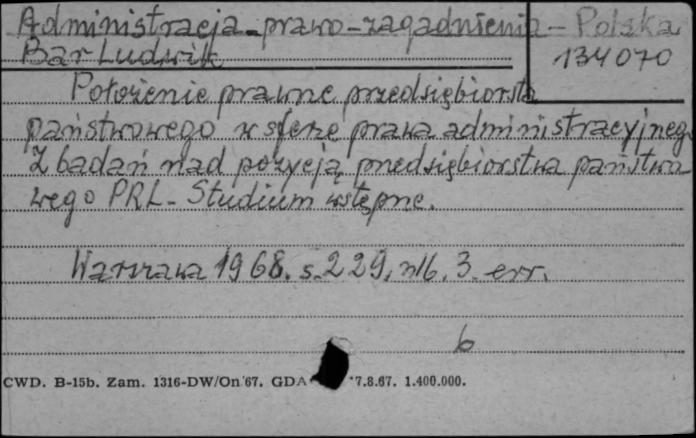 Administracja - prawo - zagadnienia - Polska
Bar Ludwik
134070
Położenie prawne przedsiębiorstw
państwowego w sferze prawa administracyjneg
Z badań nad pozycją przedsiębiorstwa państwo
wego PRL - Studium wstępne.
Warszawa 1968. s. 229, nlb. 3. err.
b
CWD. B-15b. Zam. 1316-DW/On 67. GDA 7.8.67. 1.400.000.